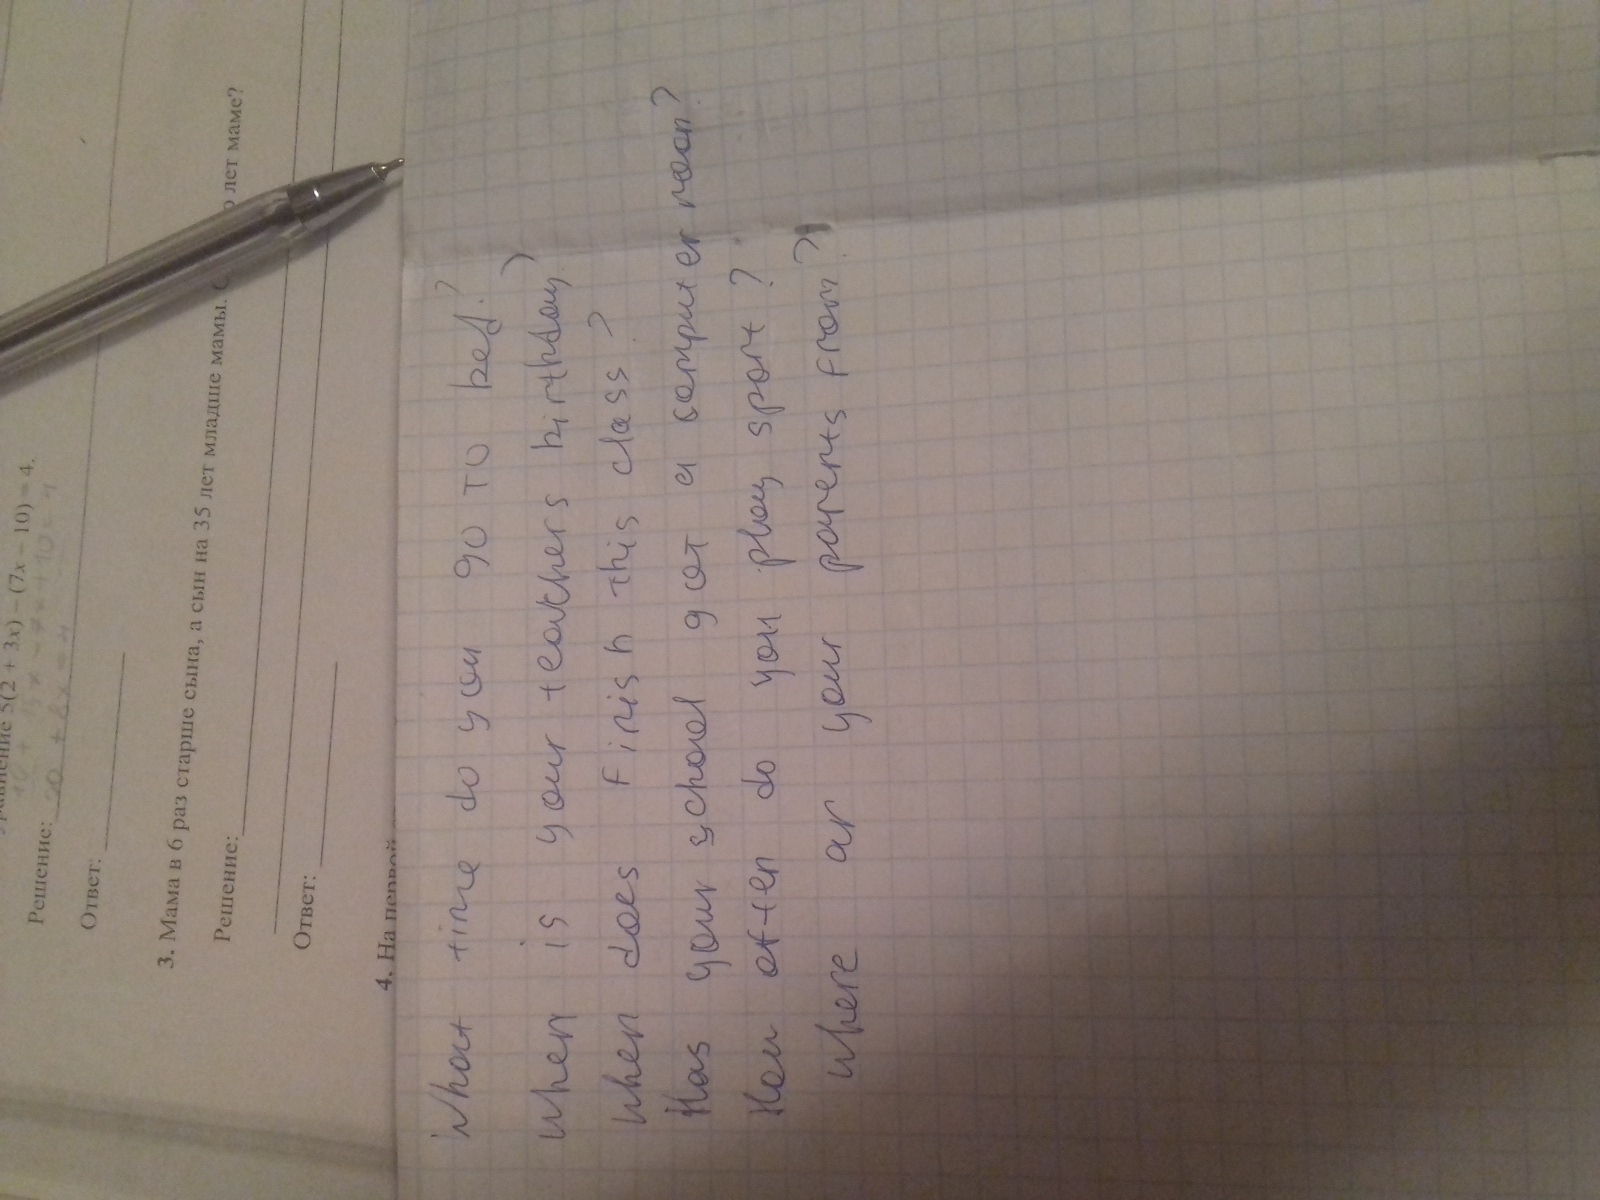 уравнение 5(2 + 3x) – (7x – 10) = 4.
Решение:
Ответ:
3. Мама в 6 раз старше сына, а сын на 35 лет младше мамы. лет маме?
Решение:
Ответ:
4. На первой
What time do you go to bed?
When is your teachers birthday?
When does finish this class?
Has your school got a computer room?
How often do you play sport?
Where ar your parents from?